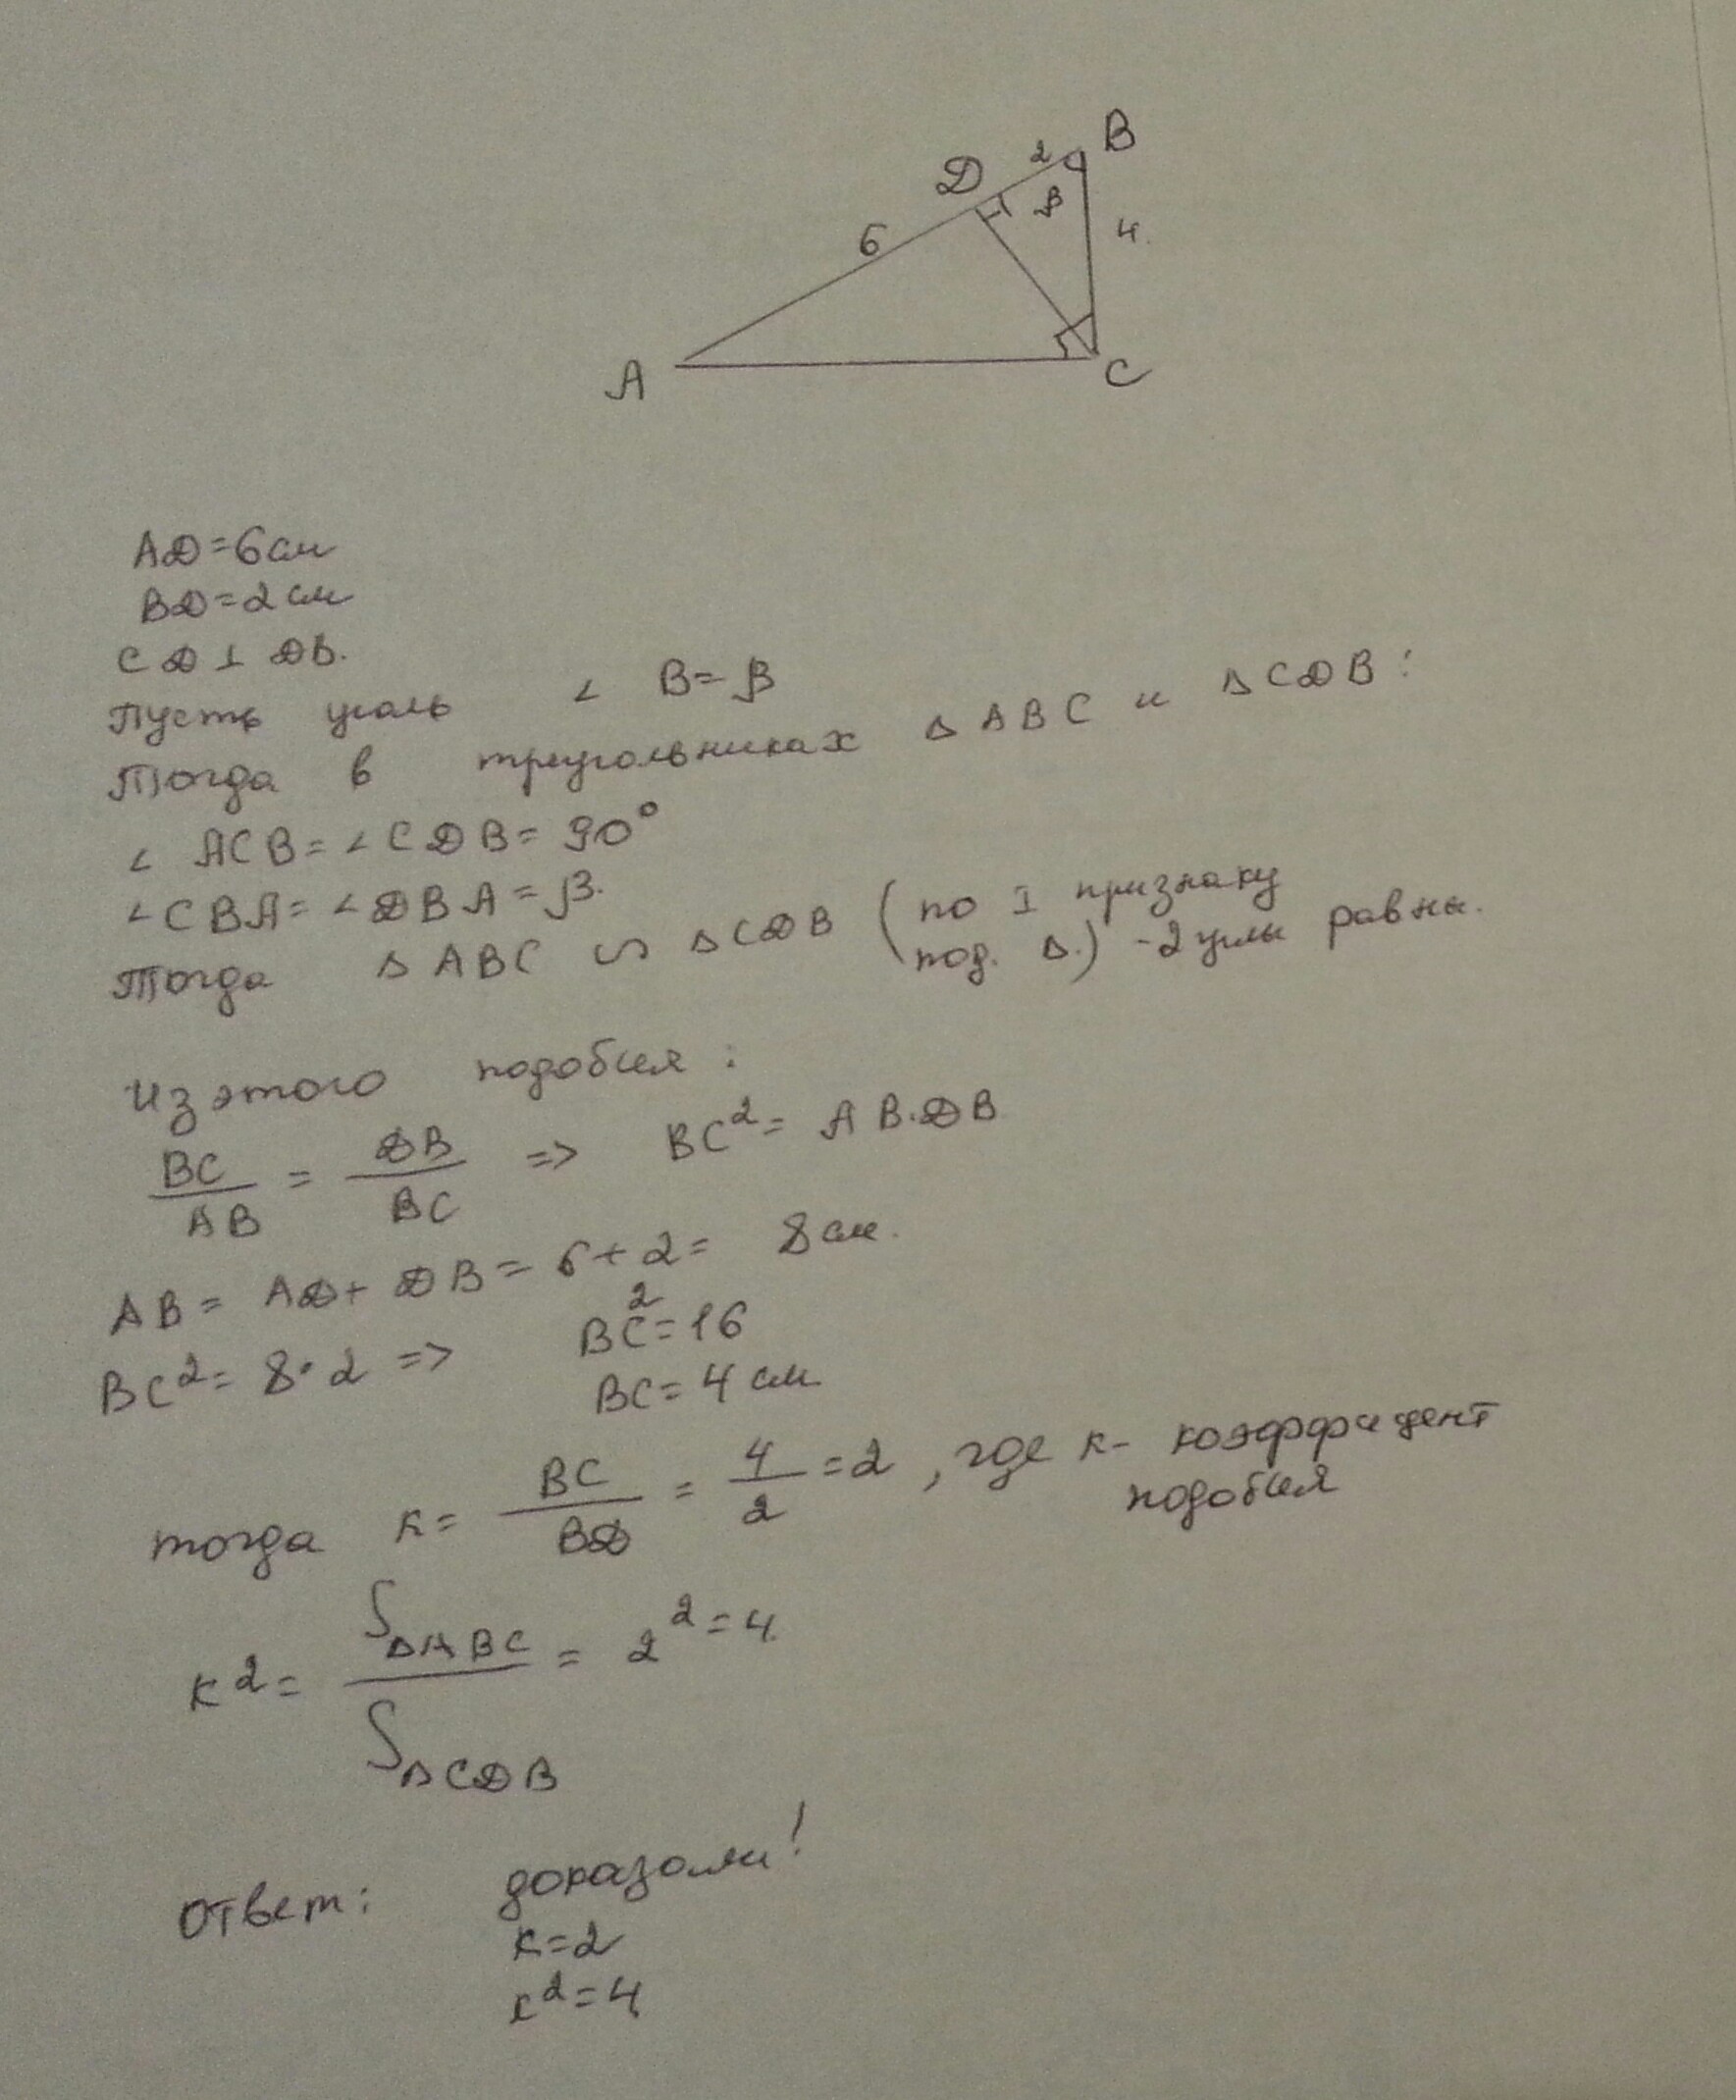 B
2
D
β
6
4.
A
C
AD=6см
BD=2см
CD⊥DB.
Пусть уголь ∠ B=β
Тогда в треугольниках △ABC и △CDB:
∠ ACB=∠CDB=90°
∠CBA=∠DBA=β.
Тогда △ABC ∽ △CDB (по I признаку
под. △.) -2 углы равны.
Из этого подобия:
BC/AB = DB/BC => BC²= AB·DB
AB= AD+DB=6+2= 8см.
BC²= 8·2 => BC²=16
BC=4см
тогда к= BC/BD = 4/2 =2, где к- коэффициент
подобия
к²= S△ABC/S△CDB = 2²=4
Ответ: доказали!
к=2
к²=4